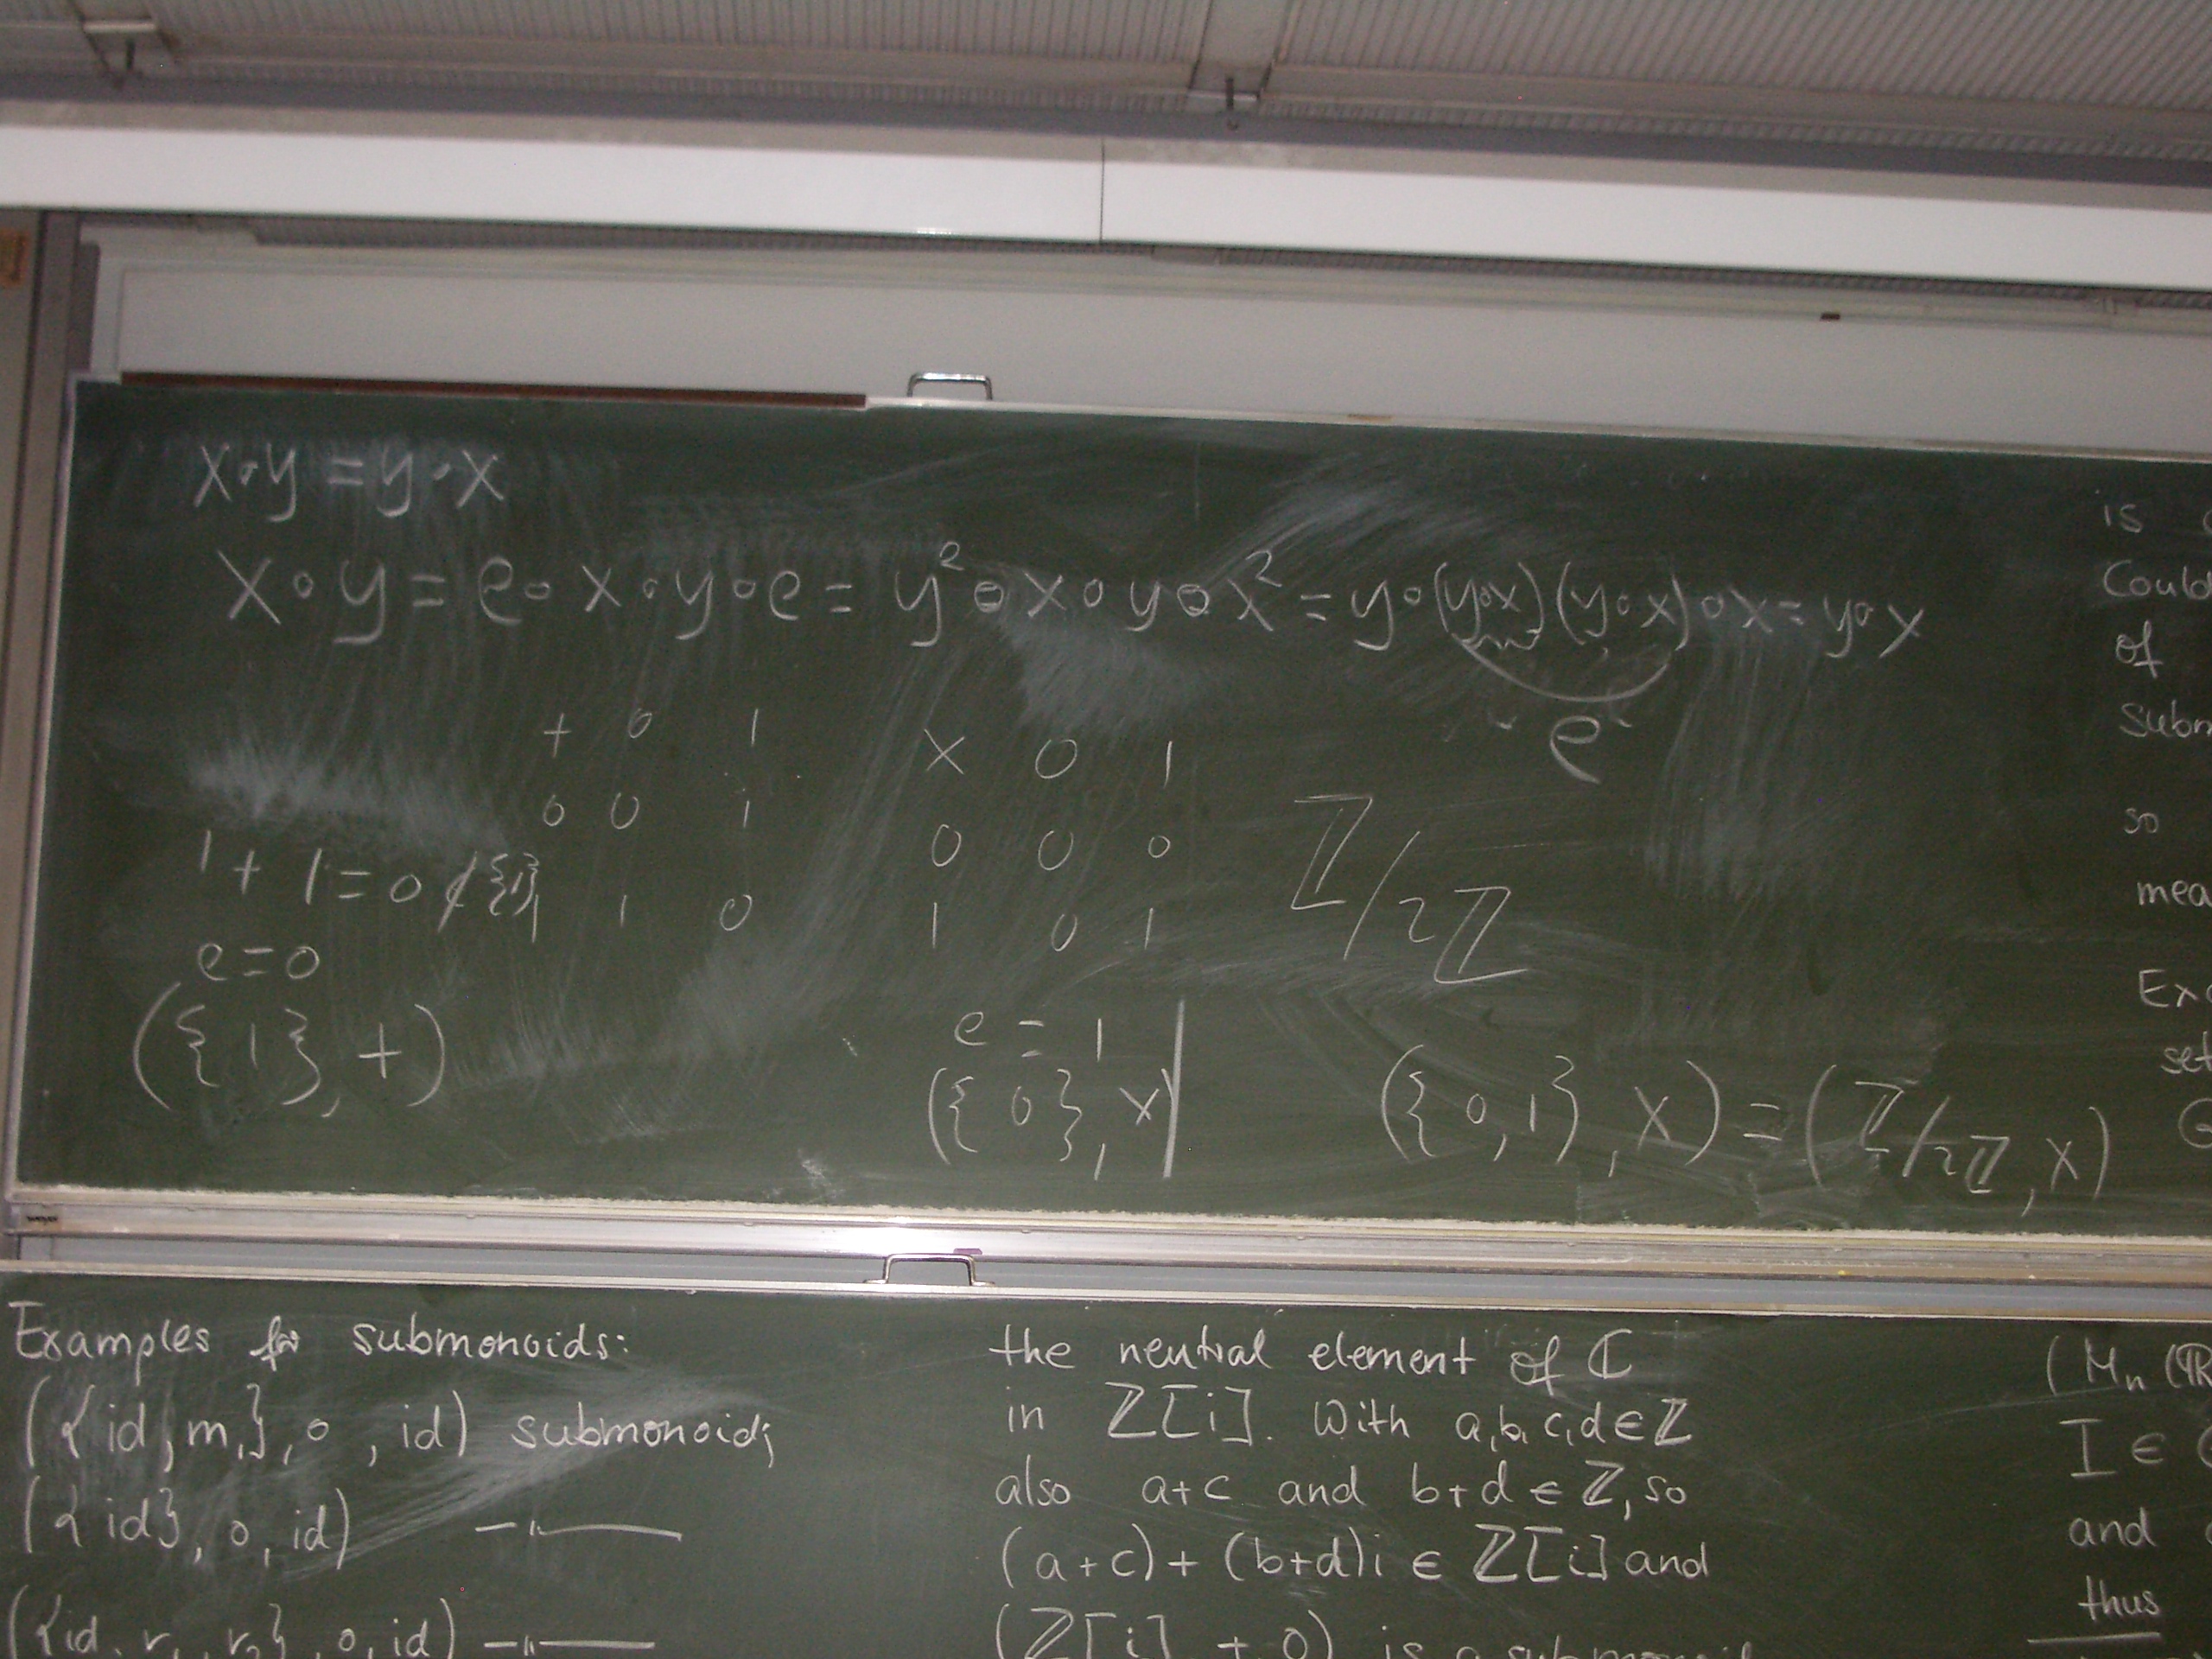 x∘y = y∘x
x∘y = e∘x∘y∘e = y²∘x∘y∘x² = y∘(y∘x)(y∘x)∘x = y∘x
e
+ 0 1
0 0 1
1 1 0
x 0 1
0 0 0
1 0 1
ℤ/2ℤ
1 + 1 = 0 ∉ {1}
e = 0
({1}, +)
e = 1
({0}, x)
({0,1}, x) = (ℤ/2ℤ, x)
is
Could
of
so
set
Examples for submonoids:
({id, m₁}, ∘, id) submonoid;
({id}, ∘, id) —"—
({id, r₁, r₂}, ∘, id) —"—
the neutral element of ℂ
in ℤ[i]. With a,b,c,d ∈ ℤ
also a+c and b+d ∈ ℤ, so
(a+c) + (b+d)i ∈ ℤ[i] and
(ℤ[i], +, 0) is a submonoid
(Mₙ(ℝ
I ∈
and
thus